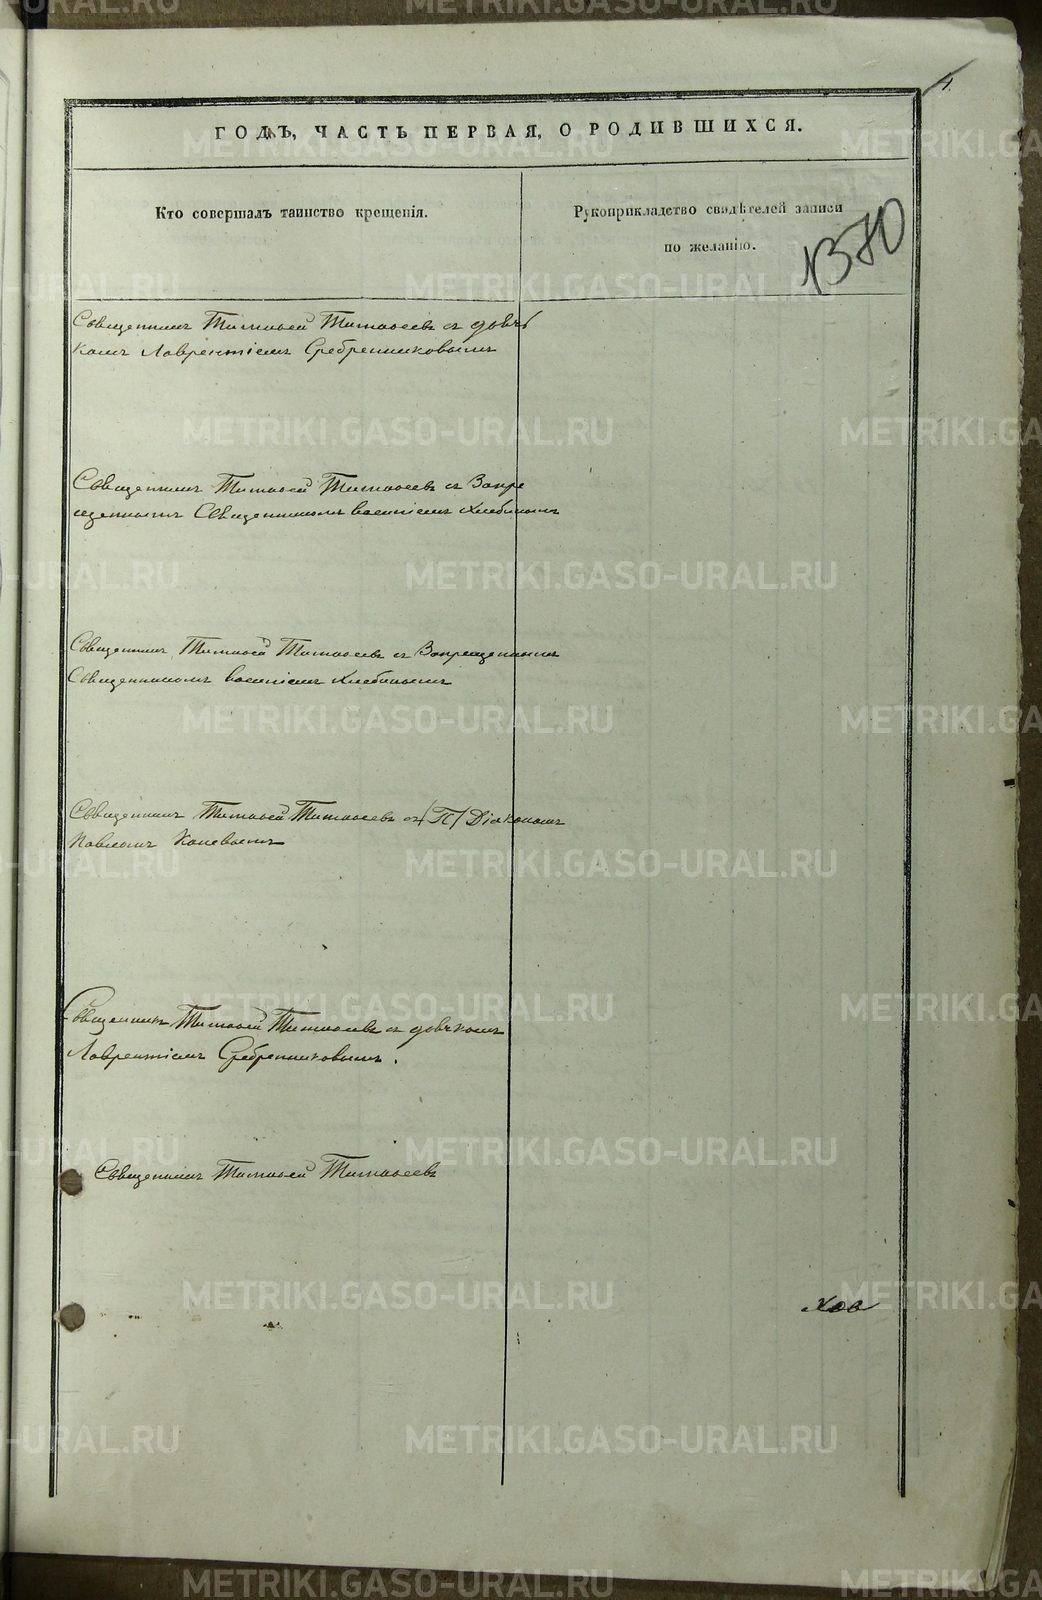 4.
ГОДЪ, ЧАСТЬ ПЕРВАЯ, О РОДИВШИХСЯ.
Кто совершалъ таинство крещенія.
Рукоприкладство свидѣтелей записи
по желанію.
1370
Священникъ Тимоѳей Тимоѳеевъ съ дьяч
комъ Лаврентіемъ Сребренниковымъ
Священникъ Тимоѳей Тимоѳеевъ съ Запре
щеннымъ Священникомъ Василіемъ Хлебинымъ
Священникъ Тимоѳей Тимоѳеевъ съ Запрещеннымъ
Священникомъ Василіемъ Хлебинымъ
Священникъ Тимоѳей Тимоѳеевъ съ /П/ Діакономъ
Павломъ Каневымъ
Священникъ Тимоѳей Тимоѳеевъ съ дьячкомъ
Лаврентіемъ Сребренниковымъ.
Священникъ Тимоѳей Тимоѳеевъ
METRIKI.GASO-URAL.RU